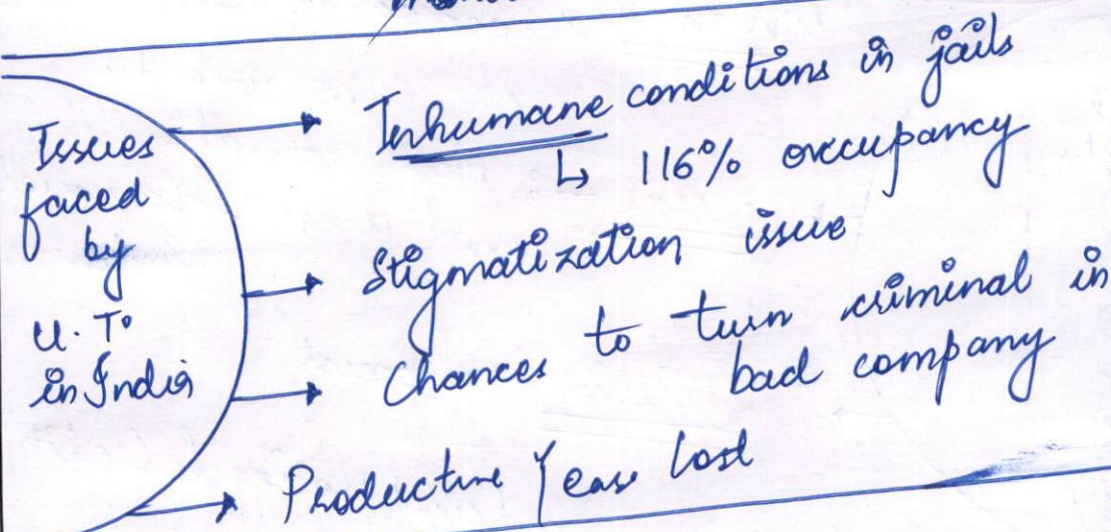 Issues
faced
by
U.T.
in India
Inhumane conditions in jails
↳ 116% occupancy
Stigmatization issue
Chances to turn criminal in
bad company
Productive Years lost